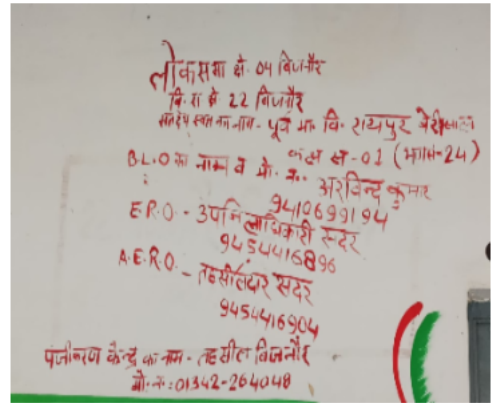 लोकसभा क्षे. 04 बिजनौर
वि. स क्षे 22 बिजनौर
मतदेय स्थल का नाम - पूर्व मा. वि. रायपुर बेरीसाल
कक्ष सं-01 (भाग-24)
B.L.O का नाम व मो. नं. अरविन्द कुमार
9410699194
E.R.O. - उपजिलाधिकारी सदर
9454416896
A.E.R.O. - तहसीलदार सदर
9454416904
पंजीकरण केन्द्र का नाम - तहसील बिजनौर
मो.नं.: 01342-264048